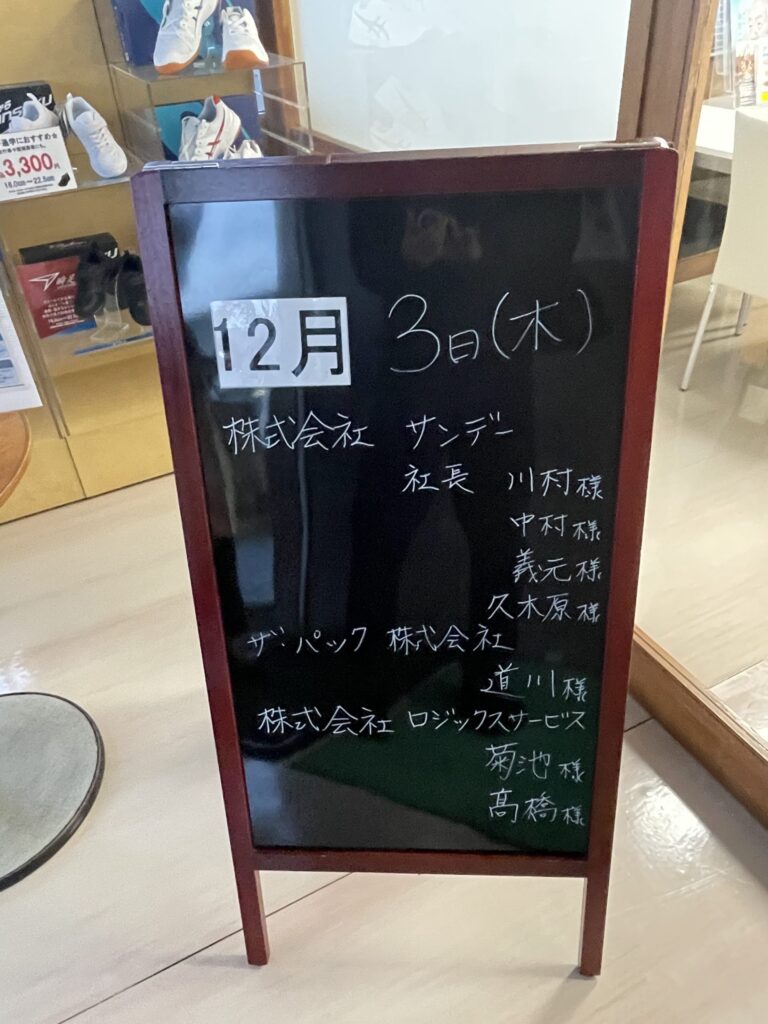 学におすすめ☆
3,300円
12月 3日(木)
株式会社 サンデー
社長 川村様
中村様
義元様
久木原様
ザ・パック 株式会社
道川様
株式会社 ロジックスサービス
菊池様
髙橋様